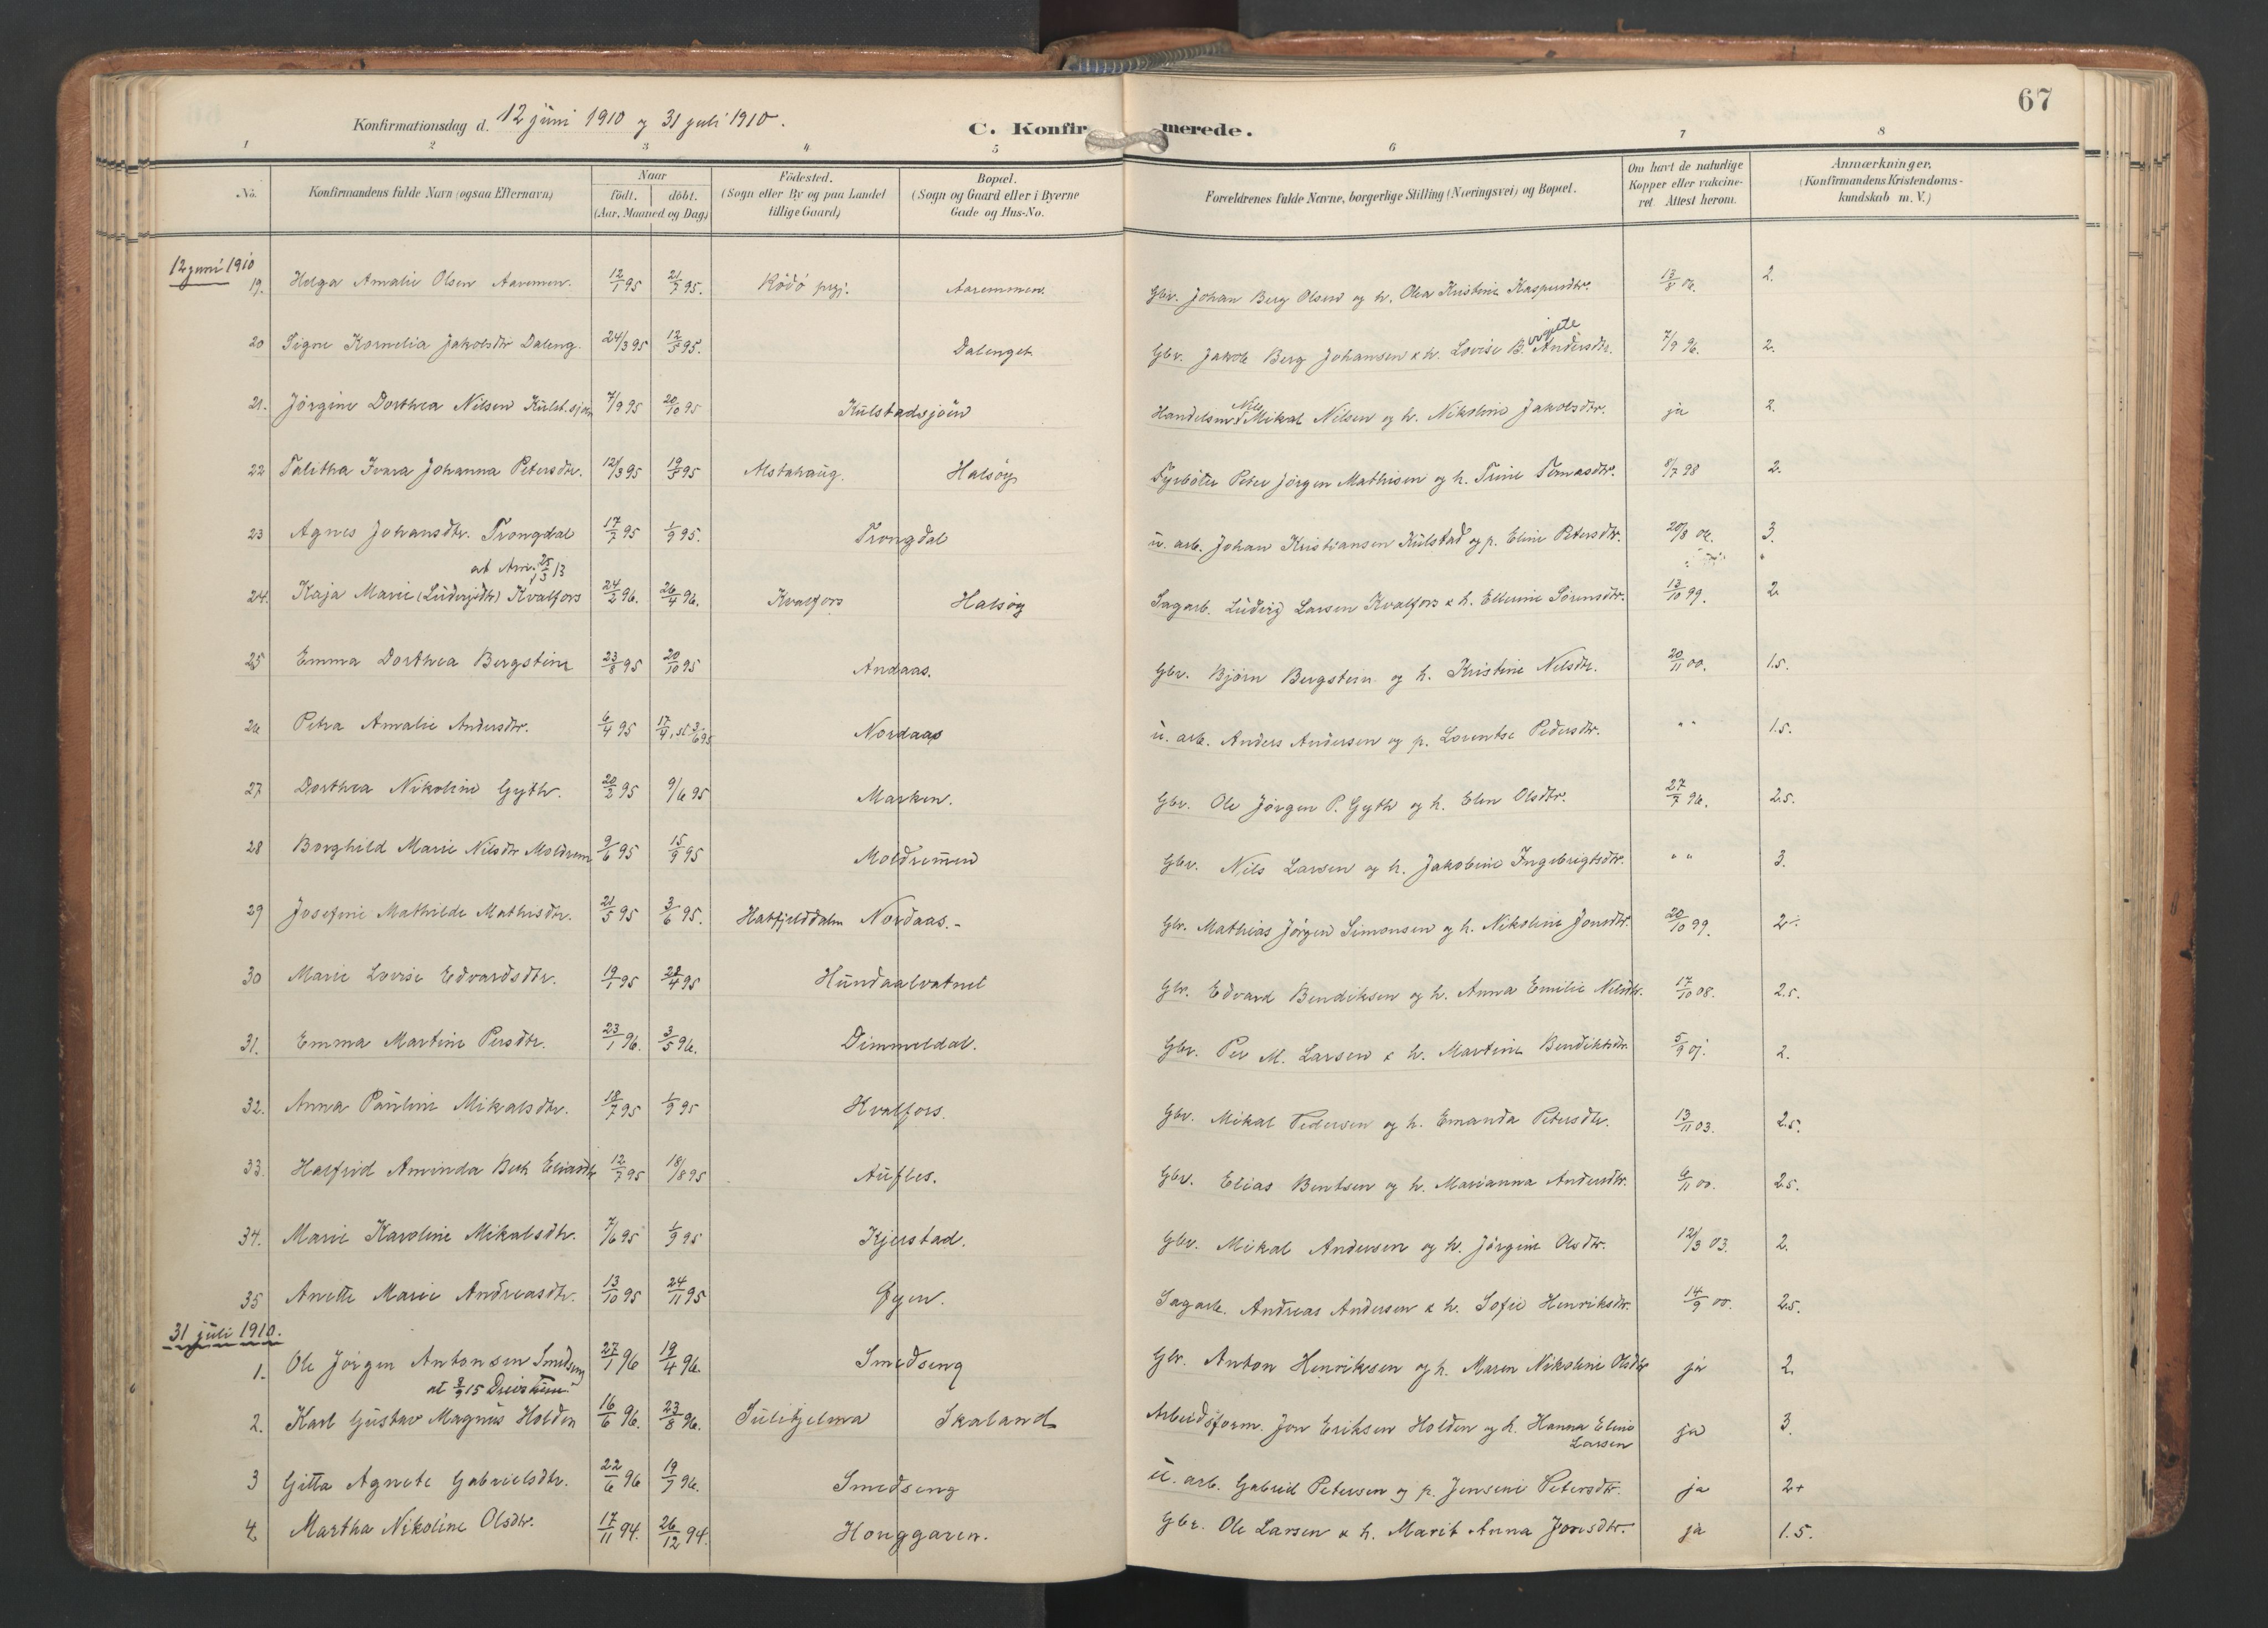 67
Konfirmationsdag d. 12 juni 1910 og 31 juli 1910.
C. Konfirmerede.
1 2 3 4 5 6 7 8
No. Konfirmandens fulde Navn (ogsaa Efternavn) Naar födt. döbt. (Aar, Maaned og Dag) Födested. (Sogn eller By og paa Landet tillige Gaard) Bopæl. (Sogn og Gaard eller i Byerne Gade og Hus-No. Forældrenes fulde Navne, borgerlige Stilling (Næringsvei) og Bopæl. Om havt de naturlige Kopper eller vakcineret Attest herom. Anmærkninger. (Konfirmandens Kristendomskundskab m. V.)
12 juni 1910
19. Helga Amalie Olsen Aaremmen. 12/1 95 21/7 95. Rödö prgj. Aaremmen. Gbr. Johan Berg Olsen og h. Olea Kristine Kaspersdtr. 13/8 06. 2.
20 Signe Kornelia Jakobsdtr Daleng. 24/3 95 12/5 95. Dalenget Gbr. Jakob Berg Johansen & h. Lovise B. Andersdtr. 7/9 96. 2.
21. Jörgine Dorthea Nilsen Kulst.sjöen 7/9 95 20/10 95 Kulstadsjöen Handelsmd Nils Mikal Nilsen og h. Nikoline Jakobsdtr. ja 2.
22 Talitha Ivara Johanna Petersdtr. 12/3 95 19/5 95 Alstahaug. Halsöy Fyrböter Peter Jörgen Mathisen og h. Trine Tomasdtr. 8/7 98 2.
23 Agnes Johansdtr. Trongdal 17/7 95 1/9 95. Trongdal u. arb. Johan Kristiansen Kulstad og p. Eline Petersdtr. 20/8 06. 3.
at Am. 25/3 13
24. Kaja Marie (Ludvigsdtr) Kvalfors 24/2 96. 26/4 96. Kvalfors Halsöy Sagarb. Ludvig Larsen Kvalfors & h. Ellerine Sörensdtr. 13/10 99. 2
25 Emma Dorthea Bergstein 23/8 95 20/10 95 Andaas. Gbr. Björn Bergstein og h. Kristine Nilsdtr. 20/11 00. 1.5.
26 Petra Amalie Andersdtr. 6/4 95 17/4, st. 3/6 95 Nordaas u. arb. Anders Andersen og p. Lorentse Pedersdtr. " " 1.5.
27 Dorthea Nikoline Gyth. 20/2 95 9/6 95 Marken. Gbr. Ole Jörgen P. Gyth og h. Elen Olsdtr. 27/7 96. 2.5.
28 Borghild Marie Nilsdtr Moldrem 9/6 95 15/9 95 Moldremen Gbr. Nils Larsen og h. Jakobine Ingebrigtsdtr. " " 3.
29 Josefine Mathilde Mathisdtr. 21/5 95 3/6 95. Hatfjelddalen Nordaas.- Gbr. Mathias Jörgen Simonsen og h. Nikoline Jonsdtr. 20/10 99. 2÷
30 Marie Lovise Edvardsdtr. 19/1 95 28/4 95 Hundaalvatnet Gbr. Edvard Bendiksen og h. Anna Emilie Nilsdtr. 17/10 08. 2.5.
31. Emma Martine Persdtr. 23/1 96. 3/5 96. Dimmeldal. Gbr. Per M. Larsen & h. Martine Bendiktsdtr. 5/9 07. 2.
32. Anna Pauline Mikalsdtr. 18/7 95 1/9 95 Kvalfors. Gbr. Mikal Pedersen og h. Emanda Petersdtr. 13/11 03. 2.5.
33. Halfrid Aminda Berh Eliasdtr 12/7 95 18/8 95 Aufles. Gbr. Elias Bentsen og h. Marianna Andersdtr. 6/11 00. 2.5.
34. Marie Karoline Mikalsdtr. 7/6 95 1/9 95 Kjerstad. Gbr. Mikal Andersen og h. Jörgine Olsdtr. 12/3 03. 2.
35 Anette Marie Andreasdtr. 13/10 95 24/11 95 Öyen. Sagarb. Andreas Andersen & h. Sofie Henriksdtr. 14/9 00. 2.5.
31 juli 1910.
1. Ole Jörgen Antonsen Smedseng 27/1 96 19/4 96. Smedseng Gbr. Anton Henriksen og h. Maren Nikoline Olsdtr ja 2
2. Karl Gustav Magnus Holden 16/6 96. 23/8 96. Sulitjelma Skaland Arbeidsform. Jon Eriksen Holden og h. Hanna Eline Larsen ja 3.
3 Gitta Agnete Gabrielsdtr. 22/6 96 19/7 96. Smedseng u. arb. Gabriel Petersen og p. Jensine Petersdtr. ja 2+
4 Martha Nikoline Olsdtr. 17/11 94. 26/12 94. Honggaren. Gbr. Ole Larsen & h. Marit Anna Jonsdtr. ja 1.5.